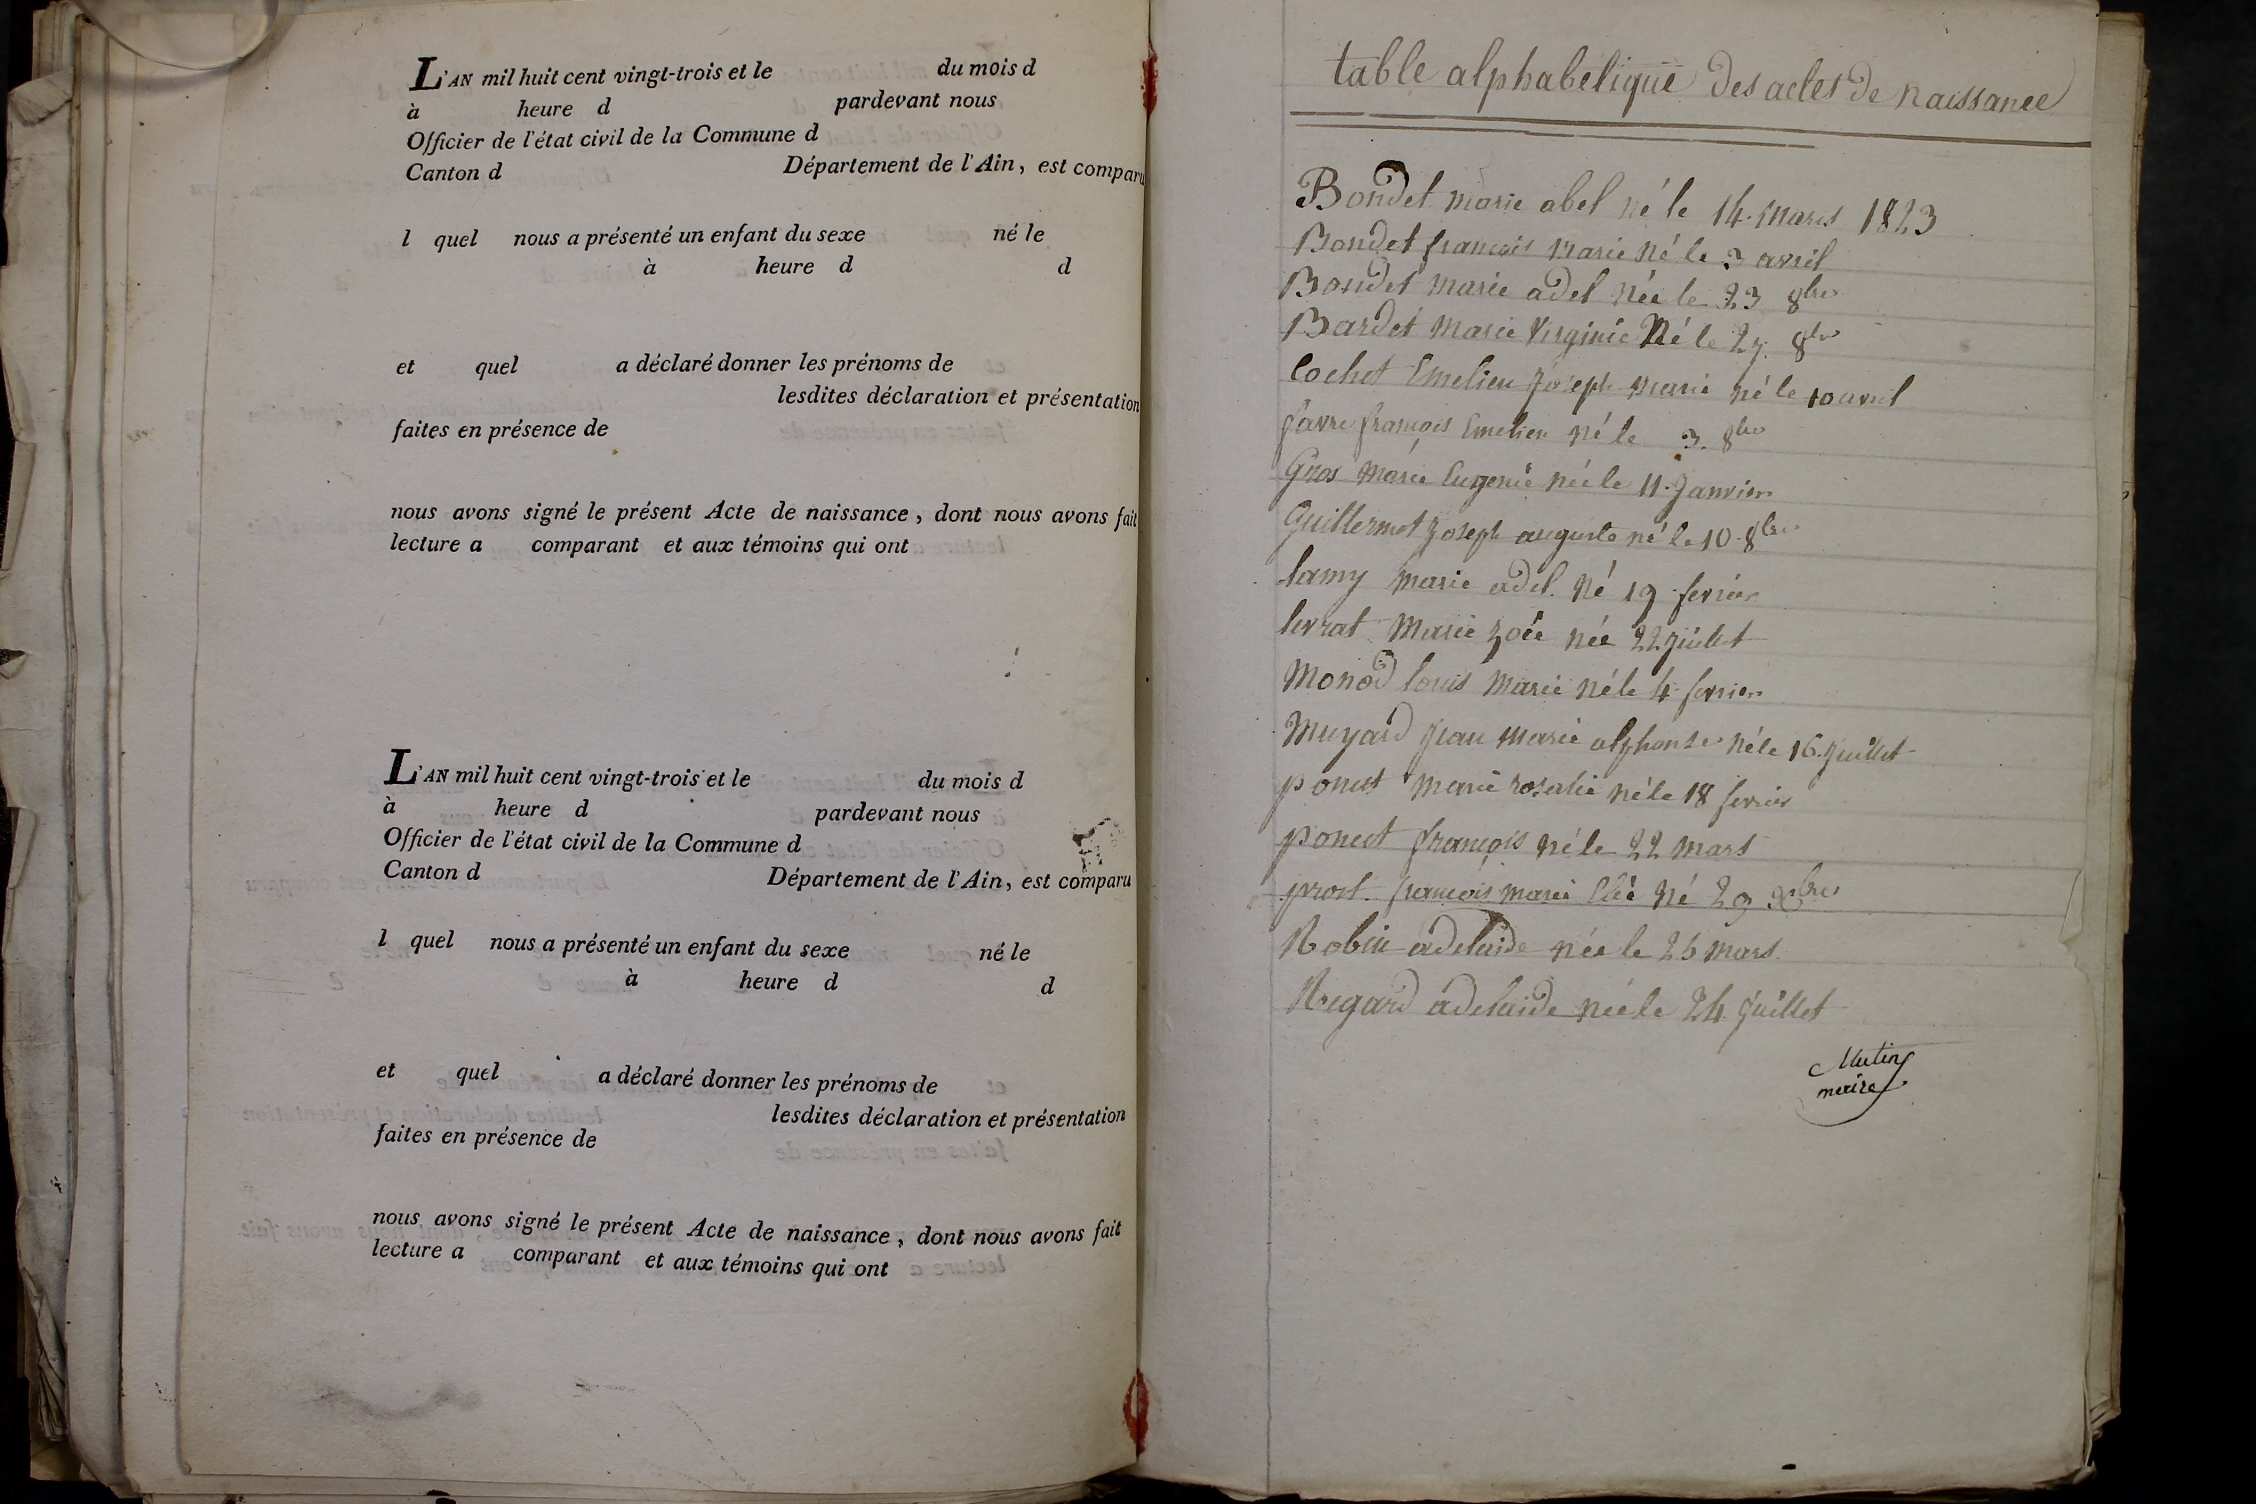 L'AN mil huit cent vingt-trois et le du mois d
à heure d pardevant nous
Officier de l'état civil de la Commune d
Canton d Département de l'Ain, est comparu
l quel nous a présenté un enfant du sexe né le
à heure d d
et quel a déclaré donner les prénoms de
lesdites déclaration et présentation
faites en présence de
nous avons signé le présent Acte de naissance, dont nous avons fait
lecture a comparant et aux témoins qui ont
L'AN mil huit cent vingt-trois et le du mois d
à heure d pardevant nous
Officier de l'état civil de la Commune d
Canton d Département de l'Ain, est comparu
l quel nous a présenté un enfant du sexe né le
à heure d d
et quel a déclaré donner les prénoms de
lesdites déclaration et présentation
faites en présence de
nous avons signé le présent Acte de naissance, dont nous avons fait
lecture a comparant et aux témoins qui ont
table alphabetique des actes de naissance
Bondet marie abel né le 14 mars 1823
Bondet françois marie né le 3 avril
Bondet marie adel née le 23 8bre
Bardet marie Virginie Né le 27 8bre
Cochet Emelien joseph marie né le 10 avril
favre françois Emelien né le 3. 8bre
Gros marie Eugenie née le 11 Janvier
Guillermet joseph auguste né le 10 8bre
lamy marie adel. Né 19 fevrier
levrat marie zoée née 22 juillet
Monod louis marie né le 4 fevrier
Muyard jean marie alphonse né le 16 juillet
poncet marie rosalie né le 18 fevrier
poncet françois né le 22 mars
prost. françois marie Né 29 Xbre
Robin adelaide née le 25 mars
Regard adelaide née le 24 juillet
Mutin
maire